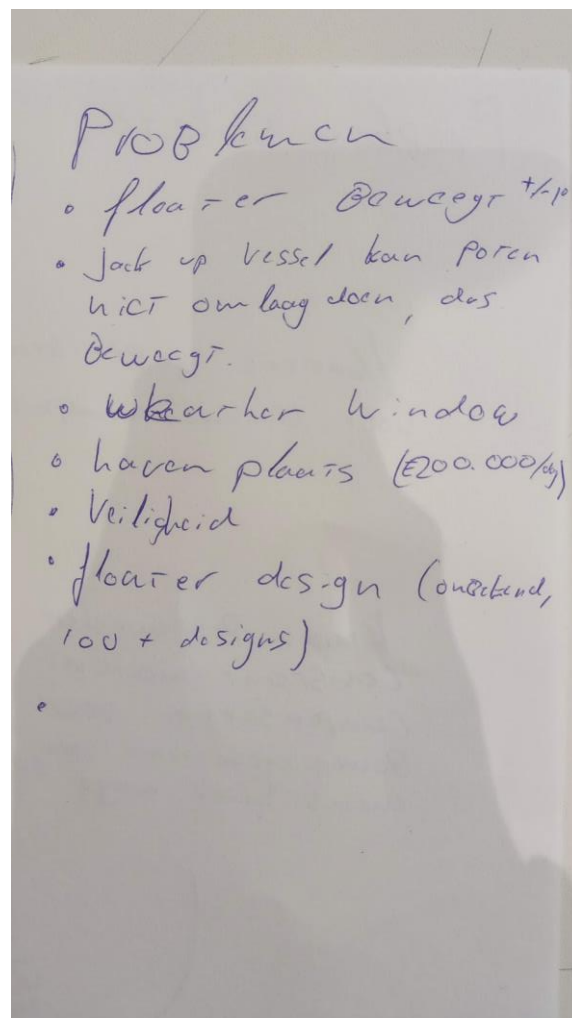 Problemen
• floater Beweegt +/-
• Jack up vessel kan poten
niet omlaag doen, dus
Beweegt.
• weather window
• haven plaats (€200.000/dg)
• Veiligheid
• floater design (onbekend,
100 + designs)
•